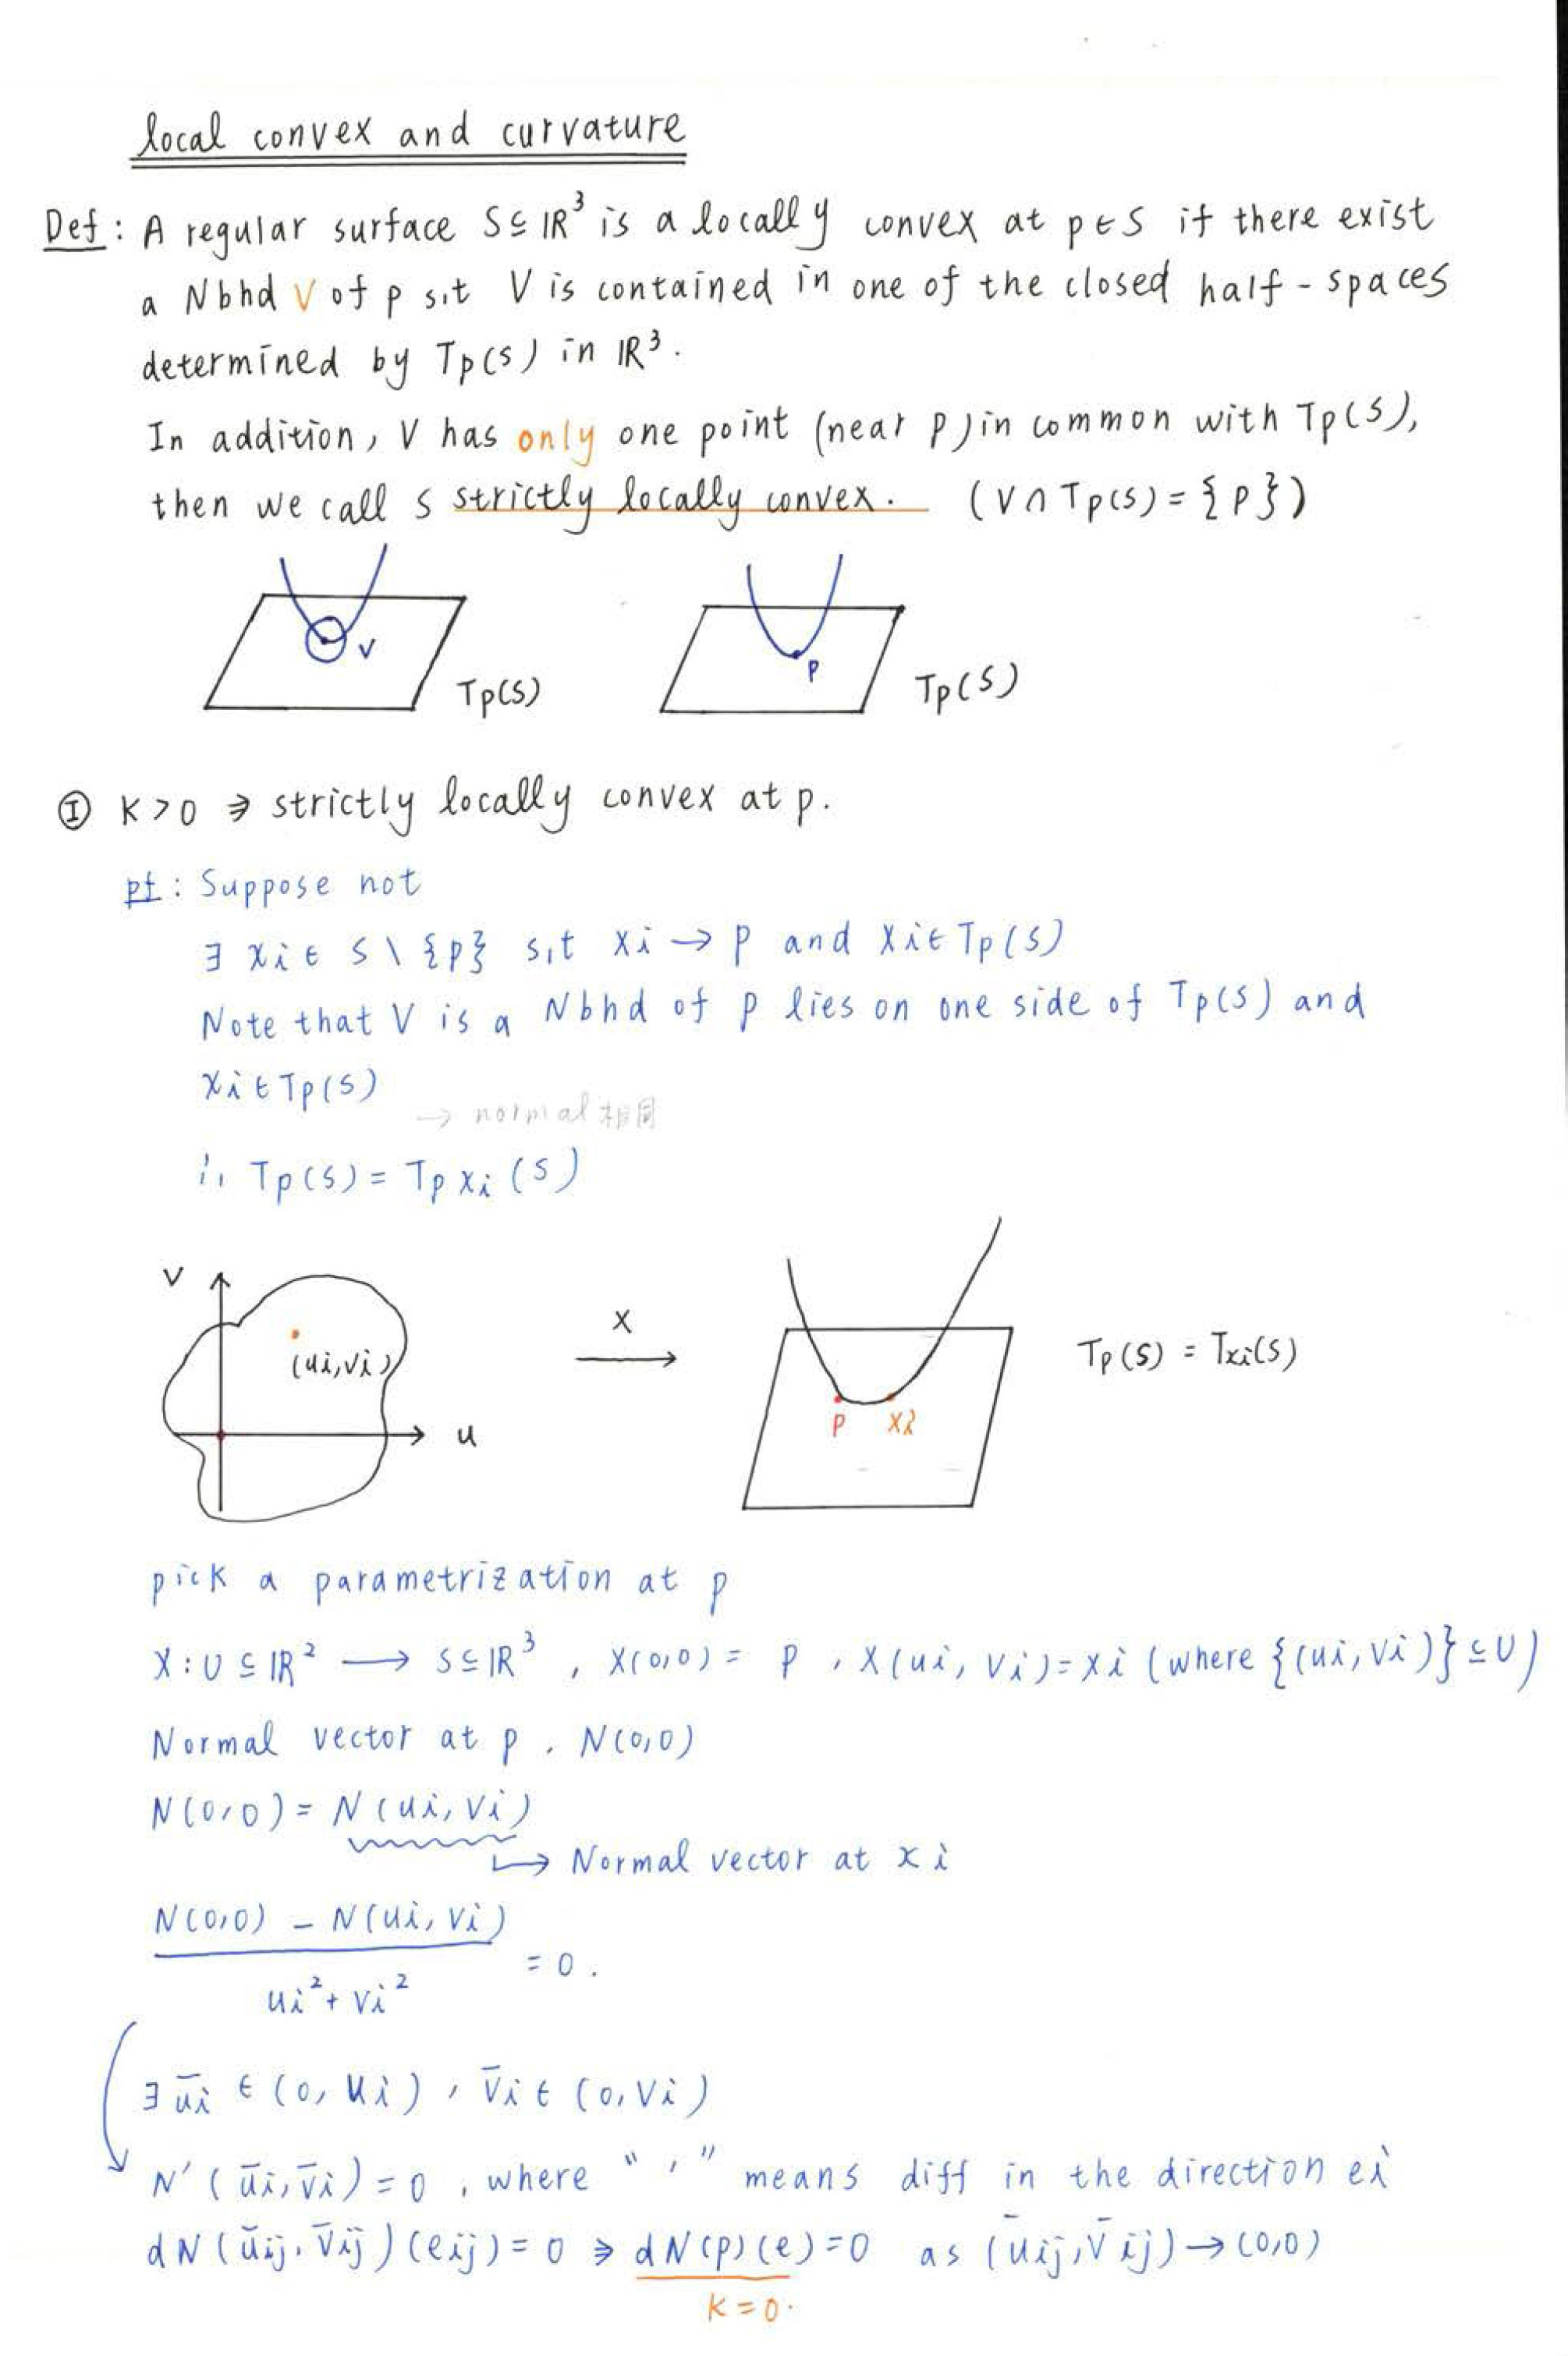 local convex and curvature
Def : A regular surface S⊆ℝ³ is a locally convex at p∈S if there exist
a Nbhd V of p s.t V is contained in one of the closed half-spaces
determined by Tp(S) in ℝ³.
In addition, V has only one point (near p) in common with Tp(S),
then we call S strictly locally convex. (V∩Tp(S)={p})
V
Tp(S)
p
Tp(S)
Ⓘ K>0 ⇒ strictly locally convex at p.
pf : Suppose not
∃ xi ∈ S\{p} s.t xi → p and xi∈Tp(S)
Note that V is a Nbhd of p lies on one side of Tp(S) and
xi∈Tp(S)
→ normal 相同
∴ Tp(S) = Tp xi (S)
V
(ui,vi)
u
X
p xi
Tp(S) = Txi(S)
pick a parametrization at p
X : U⊆ℝ² ⟶ S⊆ℝ³ , X(0,0) = p , X(ui, vi)=xi (where {(ui,vi)}⊆U)
Normal vector at p , N(0,0)
N(0,0) = N(ui, vi)
↳ Normal vector at xi
N(0,0) − N(ui, vi)
= 0 .
ui² + vi²
∃ ūi ∈ (0, ui) , v̄i ∈ (0, vi)
N′(ūi, v̄i) = 0 , where " ′ " means diff in the direction ei
dN(ūij, v̄ij)(eij) = 0 ⇒ dN(p)(e)=0 as (ūij, v̄ij)→(0,0)
K=0.